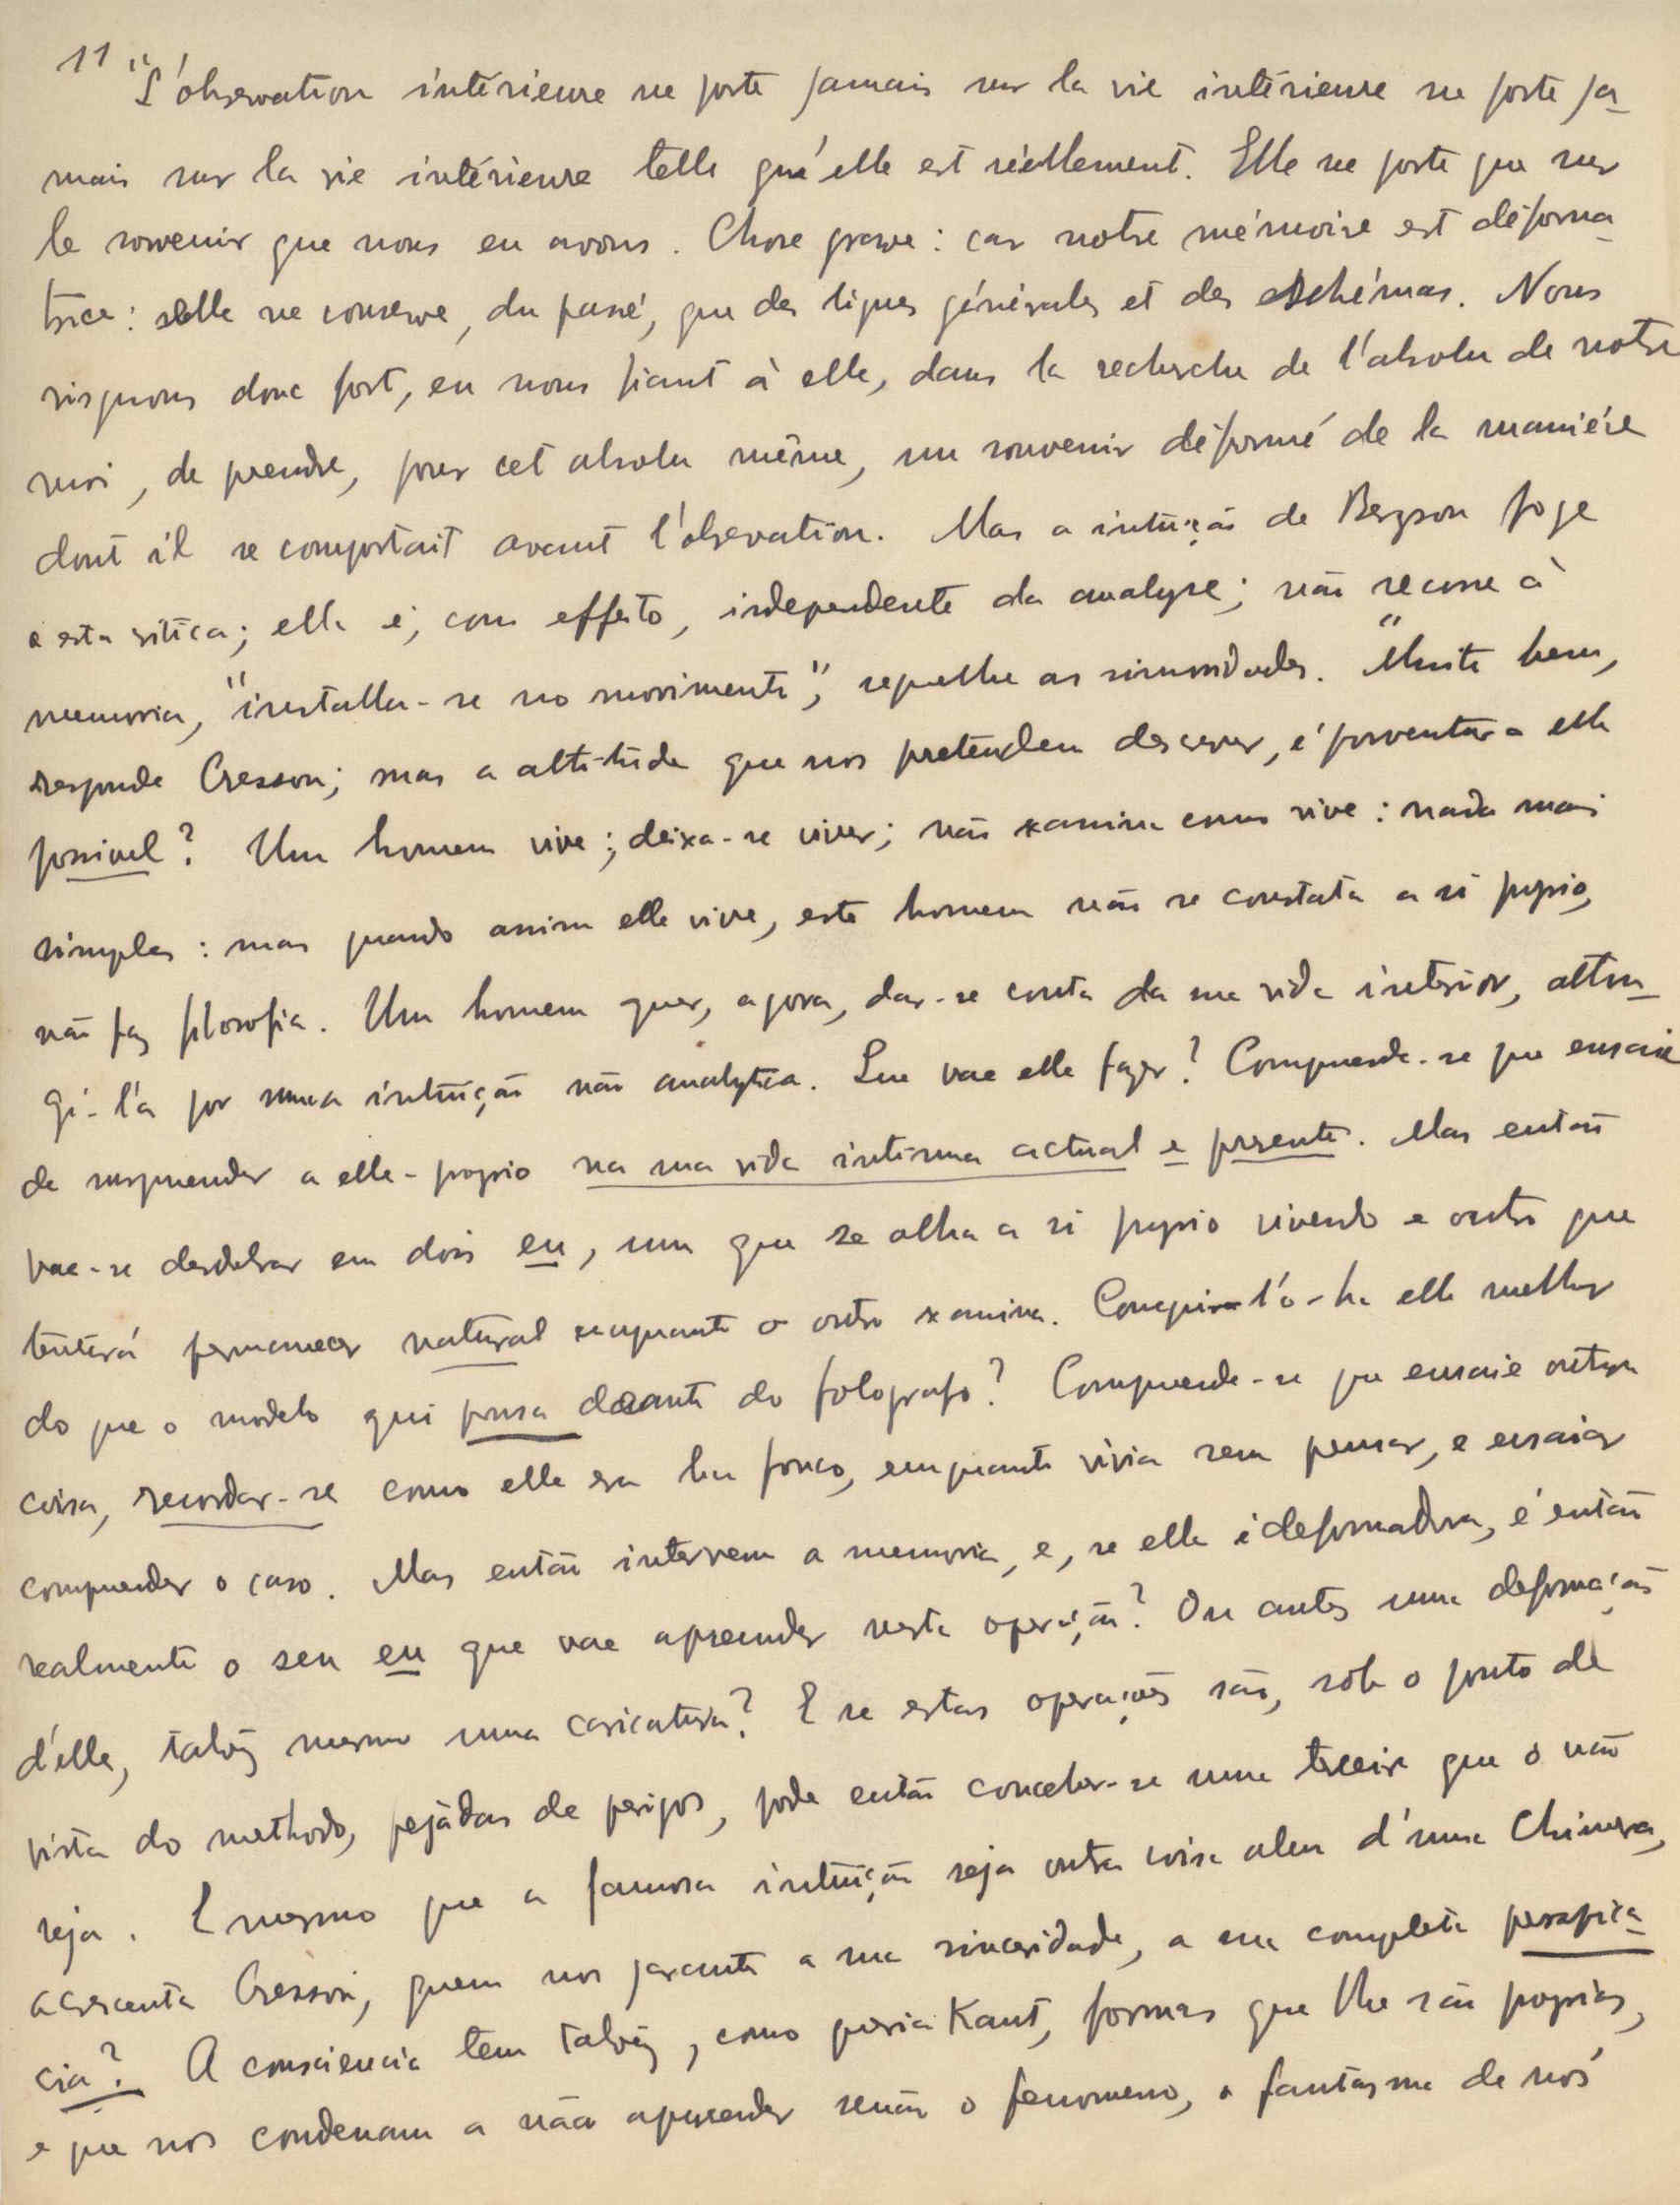 11 "L'observation intérieure ne porte jamais sur la vie intérieure ne porte ja-
mais sur la vie intérieure telle qu'elle est réellement. Elle ne porte que sur
le souvenir que nous en avons. Chose grave: car notre mémoire est déforma-
trice: elle ne conserve, du passé, que des lignes générales et des schémas. Nous
risquons donc fort, en nous fiant à elle, dans la recherche de l'absolu de notre
moi, de prendre, pour cet absolu même, un souvenir déformé de la manière
dont il se comportait avant l'observation. Mas a intuição de Bergson foge
a esta critica; ella é, com effeito, independente da analyse; não recorre à
memoria, "installa-se no movimento", repelle as sinuosidades. "Muito bem,
responde Cresson; mas a attitude que nos pretendem descrever, é porventura ella
possivel? Um homem vive; deixa-se viver; não examina como vive: nada mais
simples: mas quando assim elle vive, este homem não se constata a si proprio,
não faz filosofia. Um homem quer, agora, dar-se conta da sua vida interior, attin-
gi-l'a por uma intuição não analytica. Que vae elle fazer? Comprehende-se que ensaie
de surprender a elle-proprio na sua vida intima actual e presente. Mas então
vae-se desdobrar em dois eu, um que se olha a si proprio vivendo e outro que
tentará permanecer natural emquanto o outro examina. Conseguil'o-ha elle melhor
do que o modelo qui pousa deante do fotografo? Comprende-se que ensaie outra
coisa, recordar-se como elle era ha pouco, emquanto vivia sem pensar, e ensaiar
comprender o caso. Mas então intervem a memoria, e, se ella é deformadora, é então
realmente o seu eu que vae aprender nesta operação? Ou antes uma deformação
d'elle, talvez mesmo uma caricatura? E se estas operações são, sob o ponto de
vista do methodo, pejadas de perigos, pode então conceber-se uma terceira que o não
seja. E mesmo que a famosa intuição seja outra coisa alem d'uma Chimera,
acrescenta Cresson, quem nos garante a sua sinceridade, a sua completa perspica-
cia? A consciencia tem talvez, como queria Kant, formas que lhe são proprias,
e que nos condenam a não aprender senão o fenomeno, o fantasma de nós